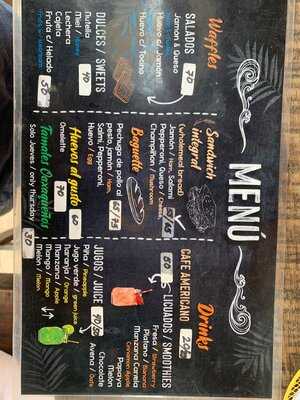 MENÚ
Waffles
SALADOS
Jamón & Queso 70
Huevo c/ Jamón
Huevo c/ Tocino
DULCES / SWEETS
Nutella 40
Miel / Honey
Lechera
Cajeta
Fruta c/ Helado 50
Fruits w/ icecream
Sandwich
integral
(wholemeal bread)
Jamón / Ham, Salami
Pepperoni, Queso / Cheese
Champiñón / Mushroom
Baguette
Pechuga de pollo al
pesto, Jamón / Ham,
Salmi, Pepperoni,
Huevo / Egg 65/75
Huevos al gusto 60
Omelette 70
Tamales Oaxaqueños
Solo Jueves / only Thursday 30
Drinks
CAFE AMERICANO 29
LICUADOS / SMOOTHIES
50
Fresa / Strawberry
Platano / Banana
Manzana Canela
Cinnamon Apple
Papaya
Melón
Chocolate
Avena / Oats
JUGOS / JUICE
Piña / Pineapple
Jugo verde / green juice
Naranja / Orange
Manzana / Apple
Mango / Mango
Melón / Melon